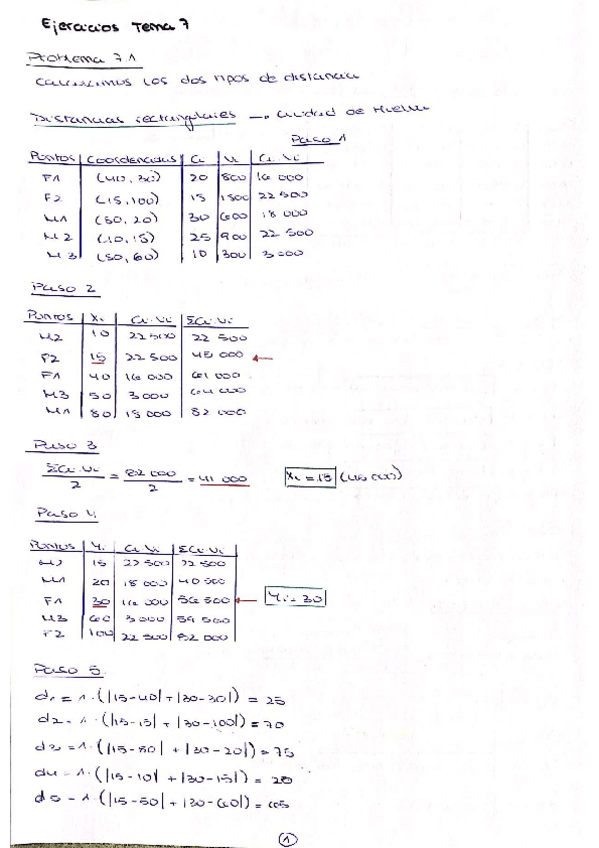 Ejercicios Tema 7
Problema 7.1
Calculamos los dos tipos de distancia
Distancias rectangulares → ciudad de
Paso 1
Puntos Coordenadas Ci Vi Ci·Vi
F1 (40,30) 20 800 16 000
F2 (15,100) 15 1500 22 500
M1 (80,20) 30 600 18 000
M2 (10,15) 25 900 22 500
M3 (50,60) 10 300 3 000
Paso 2
Puntos Xi Ci·Vi ΣCi·Vi
M2 10 22 500 22 500
F2 15 22 500 45 000 ←
F1 40 16 000 61 000
M3 50 3 000 64 000
M1 80 18 000 82 000
Paso 3
ΣCi·Vi / 2 = 82 000 / 2 = 41 000 Xi = 15
Paso 4
Puntos Yi Ci·Vi ΣCi·Vi
M2 15 22 500 22 500
M1 20 18 000 40 500
F1 30 16 000 56 500 ← Yi = 30
M3 60 3 000 59 500
F2 100 22 500 82 000
Paso 5.
d1 = 1·(|15-40| + |30-30|) = 25
d2 = 1·(|15-15| + |30-100|) = 70
d3 = 1·(|15-80| + |30-20|) = 75
d4 = 1·(|15-10| + |30-15|) = 20
d5 = 1·(|15-50| + |30-60|) = 65
1